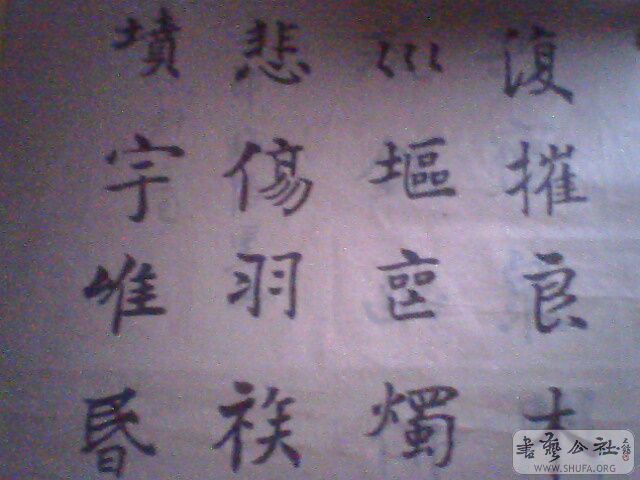 復摧良
巛塸燭
悲傷羽族
墳宇唯昏
書藝公社
WWW.SHUFA.ORG